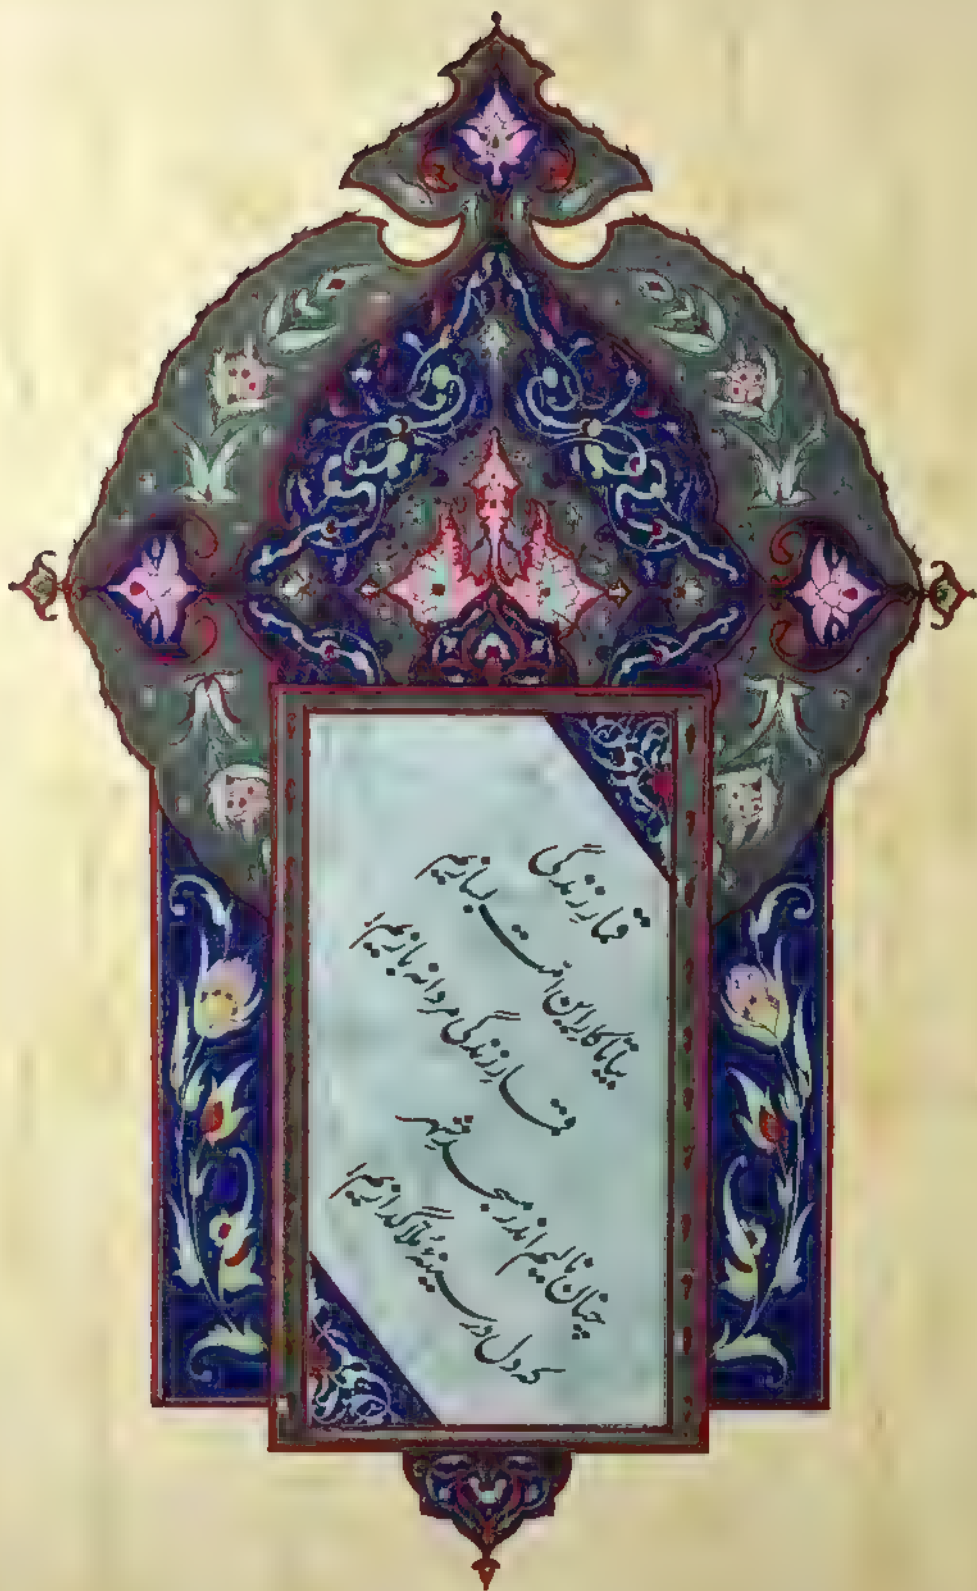 قمارِ زندگی
بیا تا کارِ این امّت بسازیم
قمارِ زندگی مردانه بازیم
چنان نالیم اندر مسجدِ شہر
کہ دل در سینۂ مُلّا گدازیم